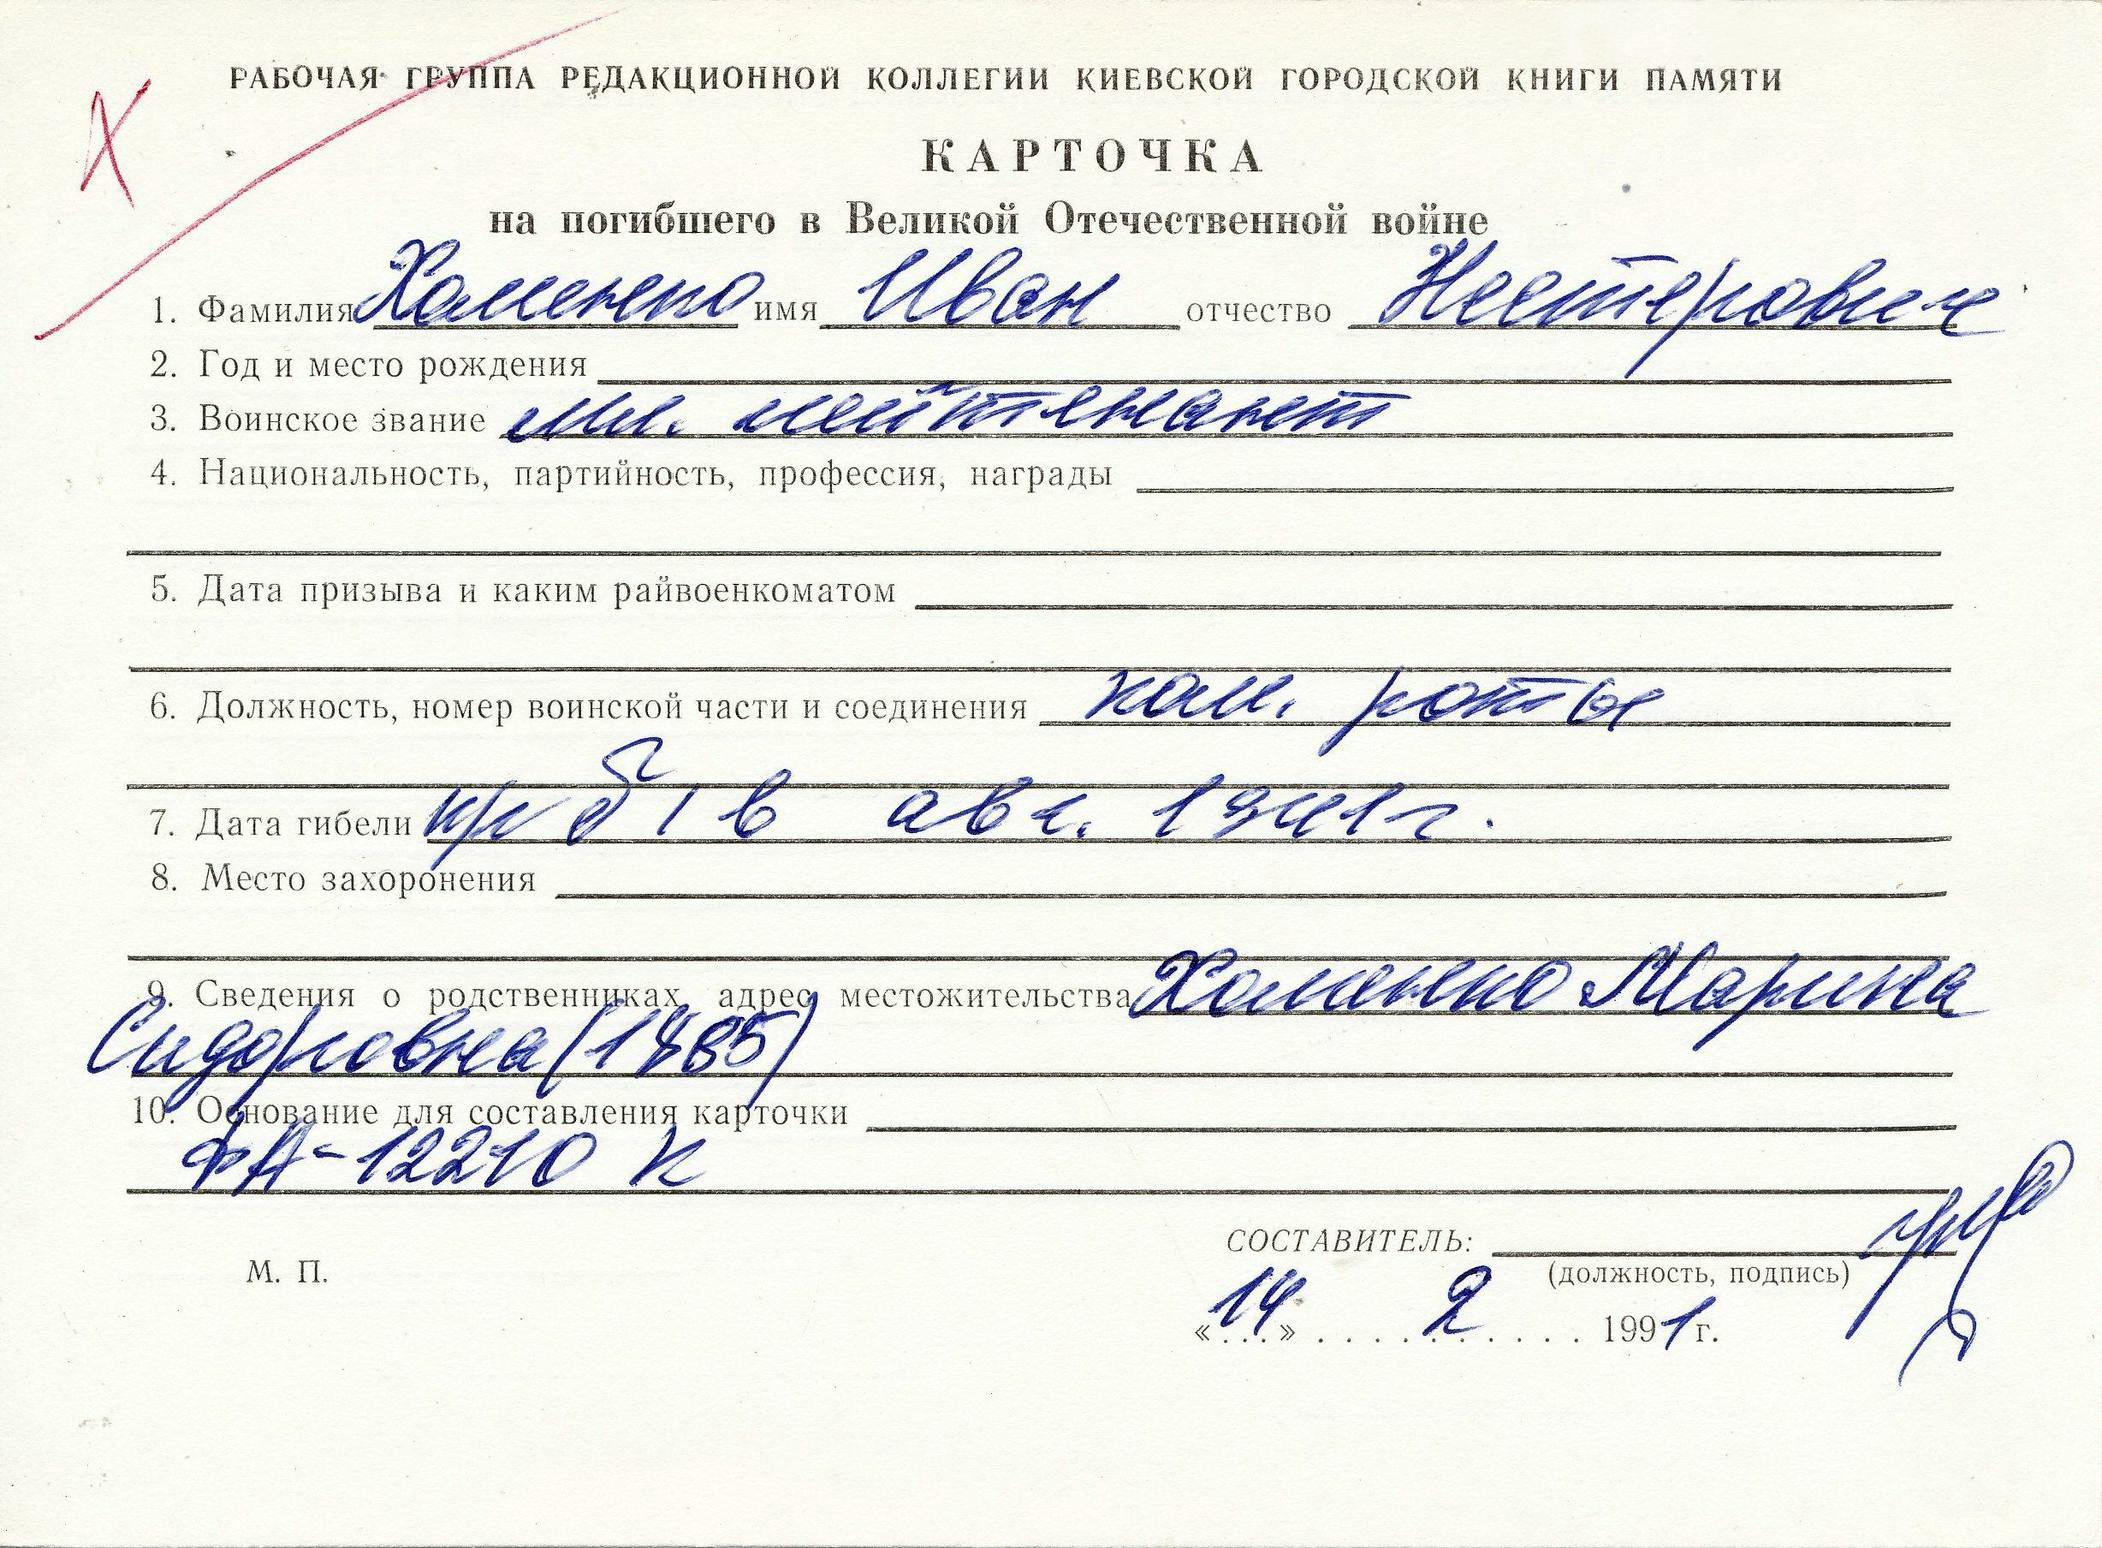 Х
РАБОЧАЯ ГРУППА РЕДАКЦИОННОЙ КОЛЛЕГИИ КИЕВСКОЙ ГОРОДСКОЙ КНИГИ ПАМЯТИ
КАРТОЧКА
на погибшего в Великой Отечественной войне
1. Фамилия Хоменко имя Иван отчество Нестерович
2. Год и место рождения
3. Воинское звание мл. лейтенант
4. Национальность, партийность, профессия, награды
5. Дата призыва и каким райвоенкоматом
6. Должность, номер воинской части и соединения ком. роты
7. Дата гибели пр б/в авг. 1941 г.
8. Место захоронения
9. Сведения о родственниках, адрес местожительства Хоменко Марина
Сидоровна (1885)
10. Основание для составления карточки
ФА-12210 К
СОСТАВИТЕЛЬ:
М. П.
(должность, подпись)
«14» 2 1991 г.